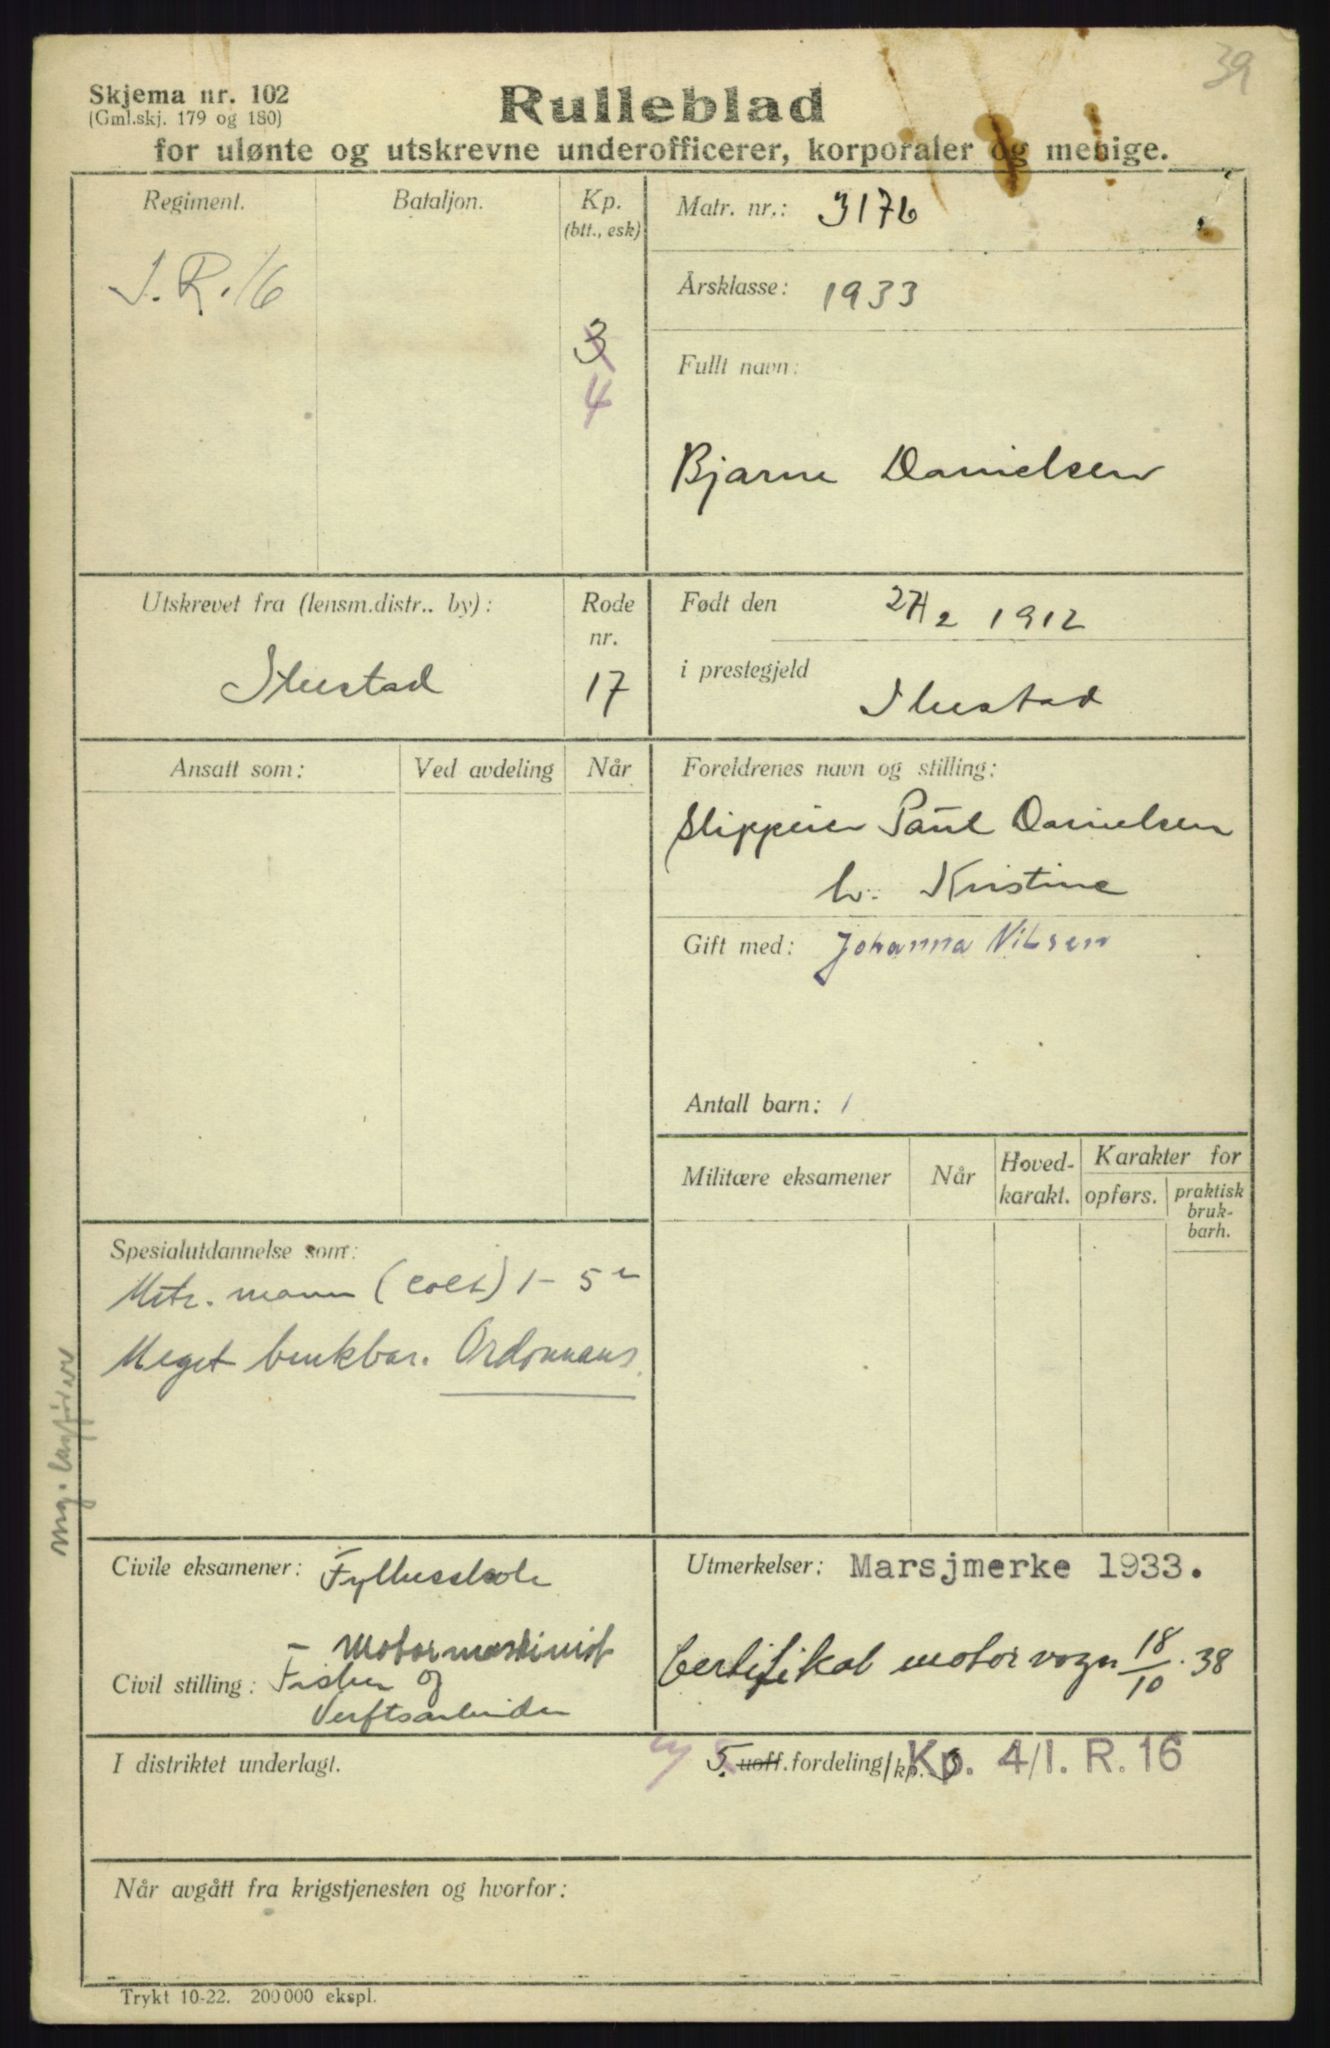 39
Skjema nr. 102
(Gml.skj. 179 og 180)
Rulleblad
for ulønte og utskrevne underofficerer, korporaler og menige.
Regiment.
Bataljon.
Kp.
(btt., esk)
I.R. 16
3
4
Matr. nr.: 3176
Årsklasse: 1933
Fullt navn:
Bjarne Danielsen
Utskrevet fra (lensm.distr.. by):
Ibestad
Rode
nr.
17
Født den 27/2 1912
i prestegjeld
Ibestad
Ansatt som:
Ved avdeling
Når
Foreldrenes navn og stilling:
Slippeier Paul Danielsen
h. Kristine
Gift med: Johanna Nilsen
Antall barn: 1
Militære eksamener
Når
Hoved-
karakt.
Karakter for
opførs.
praktisk
bruk-
barh.
Spesialutdannelse som:
Mitr. mann (colt) 1 – 5
Meget brukbar. Ordonnans.
Mg.
Civile eksamener: Fylkesskole
– Motormaskinist
Civil stilling: Fisker og
Verftsarbeider
Utmerkelser: Marsjmerke 1933.
Certifikat motorvogn 18/10.38
I distriktet underlagt.
5. uoff. fordeling/kp. 3
Kp. 4/I. R. 16
Når avgått fra krigstjenesten og hvorfor:
Trykt 10-22. 200000 ekspl.